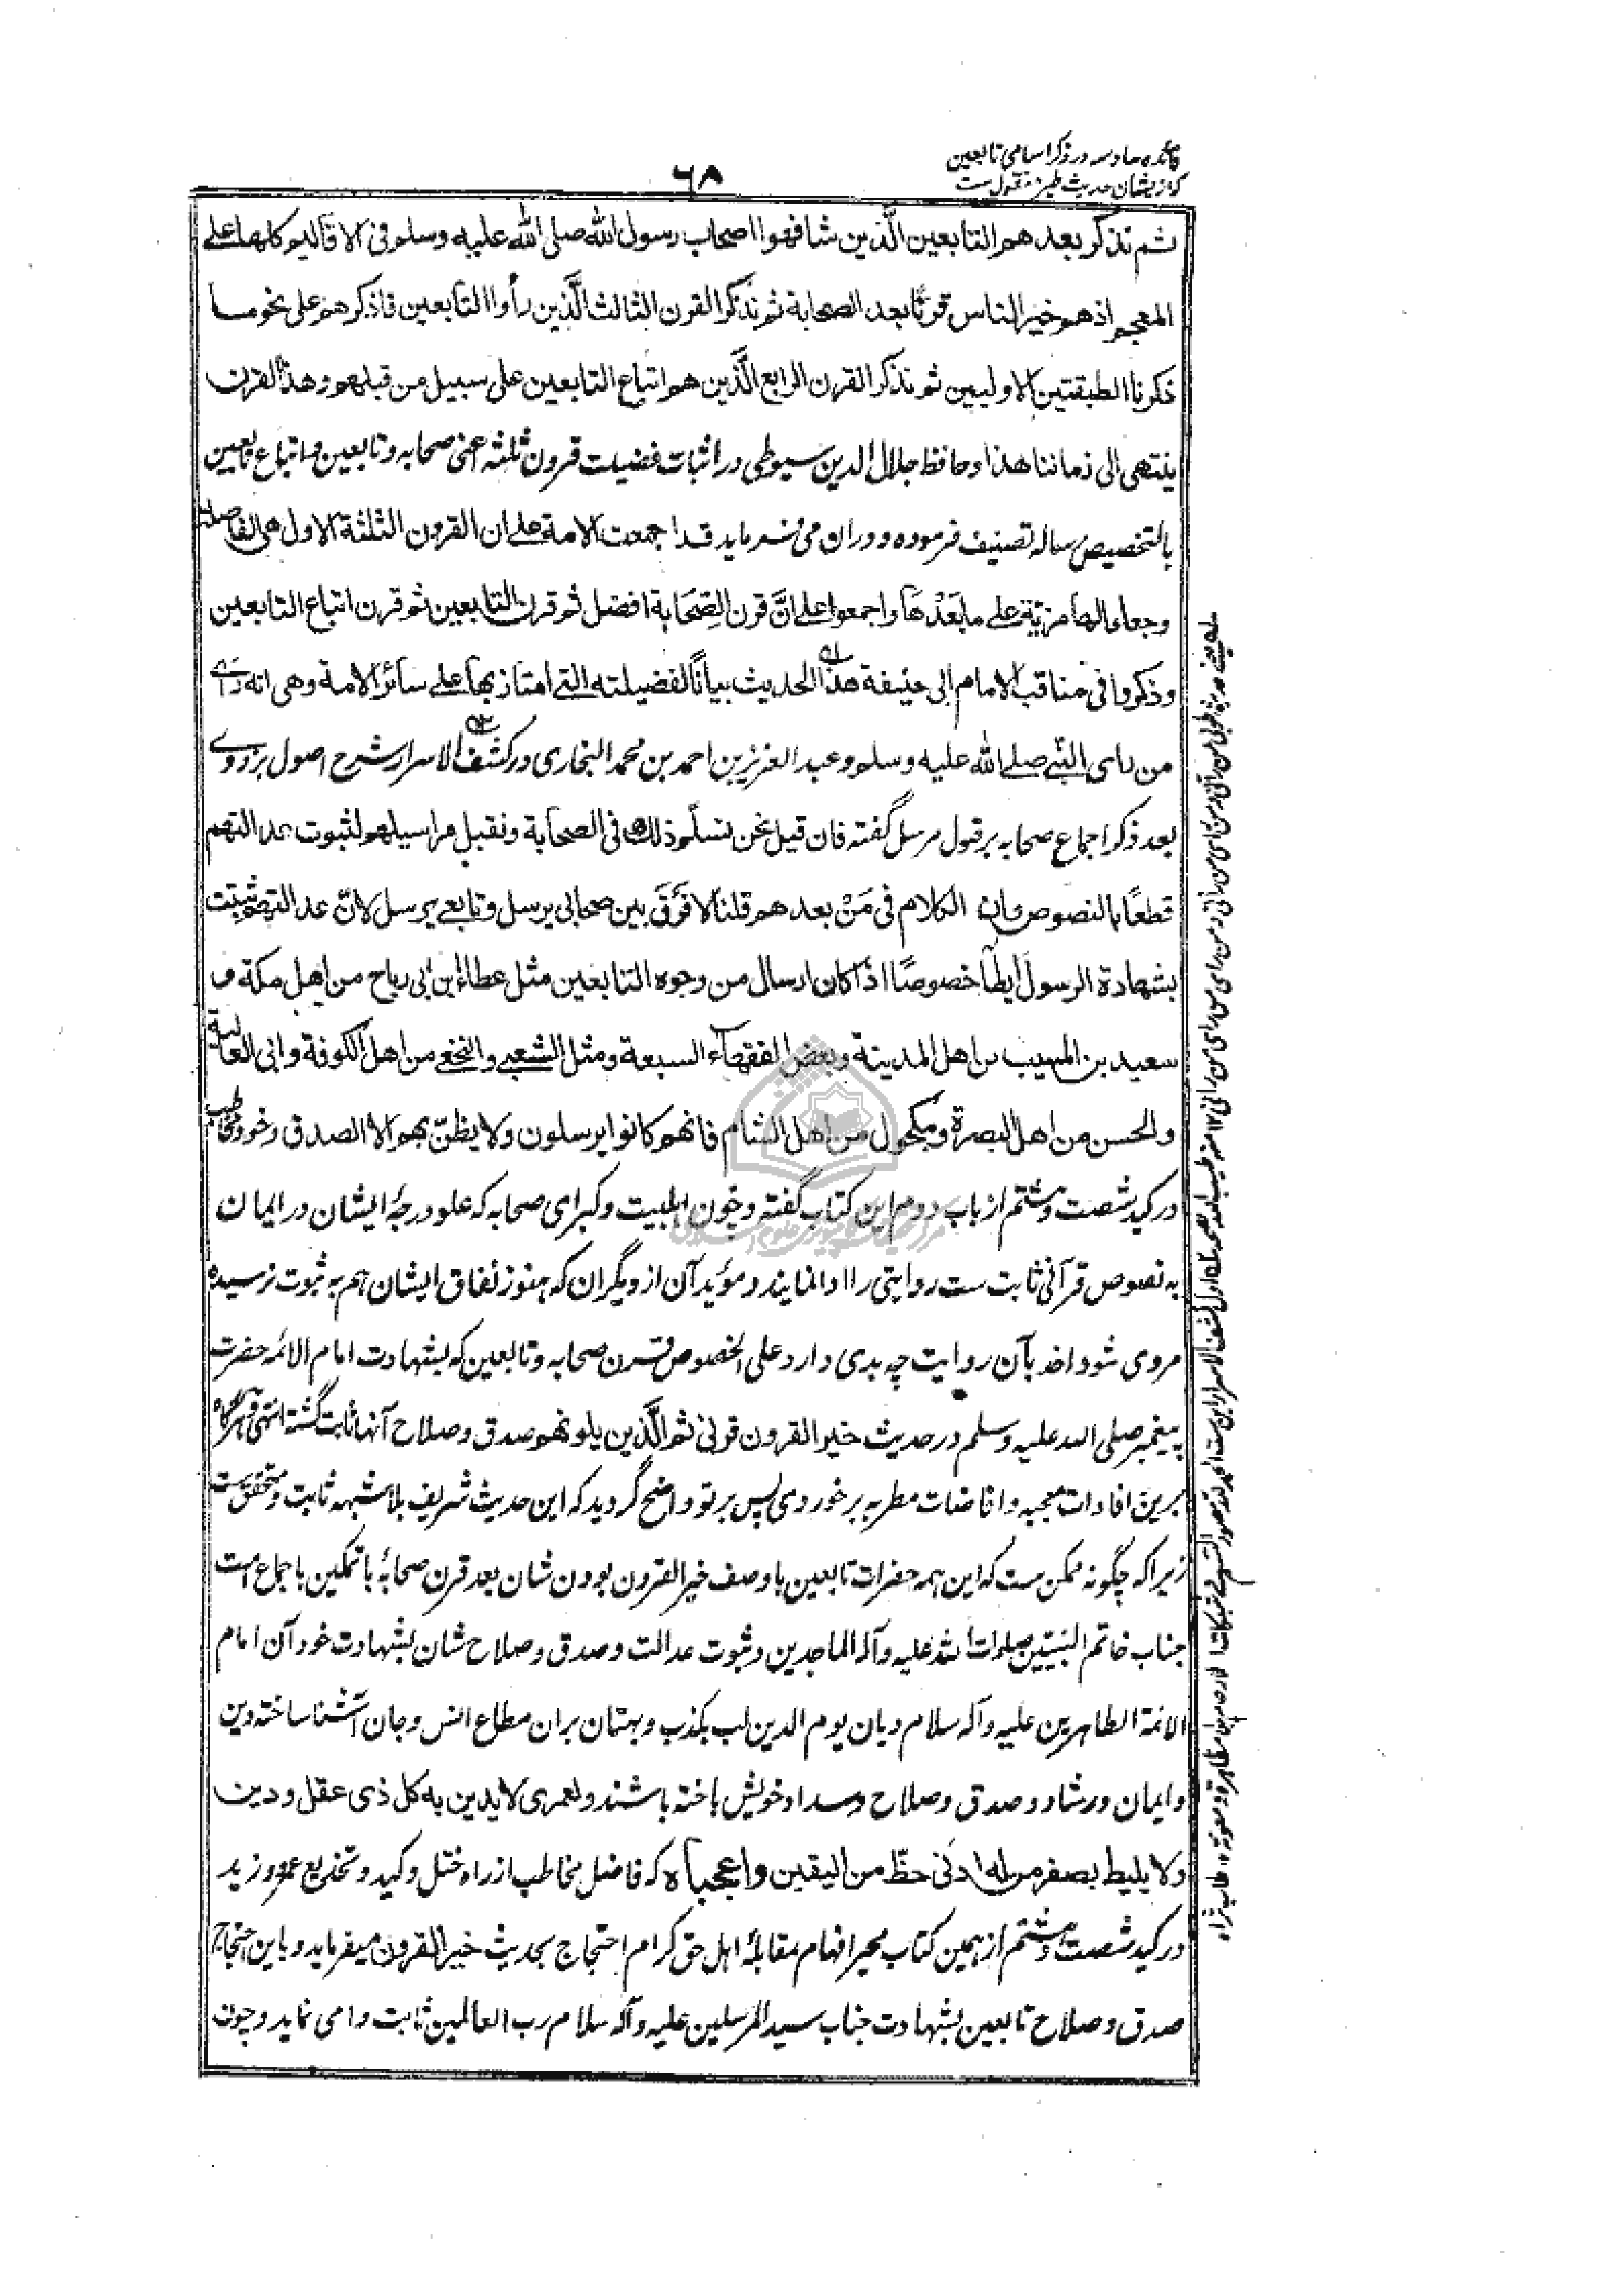 فائده سادسه در ذکر اسامی تابعین
که ازیشان حدیث طیر منقول ست
٦٨
ثم نذكر بعدهم التابعین الَّذین شافهوا اصحاب رسول الله صلی الله علیه وسلم فی الاقالیم کلها علی
المعجم اذ هم خیر الناس قرنًا بعد الصحابة ثم نذکر القرن الثالث الَّذین رأوا التابعین فاذکرهم علی نحو ما
ذکرنا الطبقتین الاولیین ثم نذکر القرن الرابع الَّذین هم اتباع التابعین علی سبیل من قبلهم وهذا القرن
ینتهی الی زماننا هذا وحافظ جلال الدین سیوطی در اثبات فضیلت قرون ثلثه اعنی صحابه و تابعین و اتباع تابعین
بالتخصیص رساله تصنیف فرموده ودران می فرماید قد اجمعت الامة علی ان القرون الثلثة الاول هی الفاضلة
وجعلوا لها مزیّة علی ما بَعْدَهَا واجمعوا علی انَّ قرن الصّحَابَة افضل ثم قرن التابعین ثم قرن اتباع التابعین
وذکروا فی مناقب الامام ابی حنیفة هذا الحدیث بیانًا لفضیلته التی امتاز بها علی سائر الامة وهی انه رَأی
من رای النّبی صلی الله علیه وسلم وعبد العزیز بن احمد بن محمد البخاری در کشف الاسرار شرح اصول بزدوی
بعد ذکر اجماع صحابه بر قبول مرسل گفته فان قیل نحن نسلّم ذلک فی الصحابة ونقبل مراسیلهم لثبوت عدالتهم
قطعًا بالنصوص وان الکلام فی مَنْ بعدهم قلنا لا فَرْقَ بین صحابی یرسل وتابعی یرسل لانّ عدالتهم ثبتت
بشهادة الرسول ایضًا خصوصًا اذا کان ارسال من وجوه التابعین مثل عطاء بن ابی رباح من اهل مکة و
سعید بن المسیب من اهل المدینة وبعض الفقهاء السبعة ومثل الشعبی والنخعی من اهل الکوفة وابی العالیة
والحسن من اهل البصرة ومکحول من اهل الشام فانهم کانوا یرسلون ولا یظنّ بهم الا الصدق وخود مخاطب
در کید شصت و هشتم از باب دوم این کتاب گفته و چون اهلبیت و کبرای صحابه که علو درجهٔ ایشان در ایمان
به نصوص قرآنی ثابت ست روایتی را ادا نمایند و مؤید آن از دیگران که هنوز نفاق ایشان هم به ثبوت نرسیده
مروی شود اخذ بآن روایت چه بدی دارد علی الخصوص قرن صحابه و تابعین که بشهادت امام الائمه حضرت
پیغمبر صلی الله علیه وسلم در حدیث خیر القرون قرنی ثم الَّذین یلونهم صدق و صلاح آنها ثابت گشته انتهی و هرگاه
برین افادات معجبه و افاضات مطربه برخوردی پس بر تو واضح گردید که این حدیث شریف بلا شبهه ثابت و محقق ست
زیرا که چگونه ممکن ست که این همه حضرات تابعین باوصف خیر القرون بودن شان بعد قرن صحابهٔ باتمکین باجماع امت
جناب خاتم النبیّین صلوات الله علیه وآله الماجدین و ثبوت عدالت و صدق و صلاح شان بشهادت خود آن امام
الائمة الطاهرین علیه وآله سلام دیان یوم الدین لب بکذب و بهتان بران مطاع انس و جان آشنا ساخته دین
و ایمان و رشاد و صدق و صلاح و سداد خویش باخته باشند ولعمری لا یدین به کل ذی عقل و دین
ولا یلیط بصفر من له ادنی حظّ من الیقین واعجباه که فاضل مخاطب از راه ختل و کید و تخدیع عمرو و زید
در کید شصت و هشتم از همین کتاب محیر افهام بمقابلهٔ اهل حق کرام احتجاج بحدیث خیر القرون میفرماید و باین احتجاج
صدق و صلاح تابعین بشهادت جناب سید المرسلین علیه وآله سلام رب العالمین ثابت وا می نماید و چون